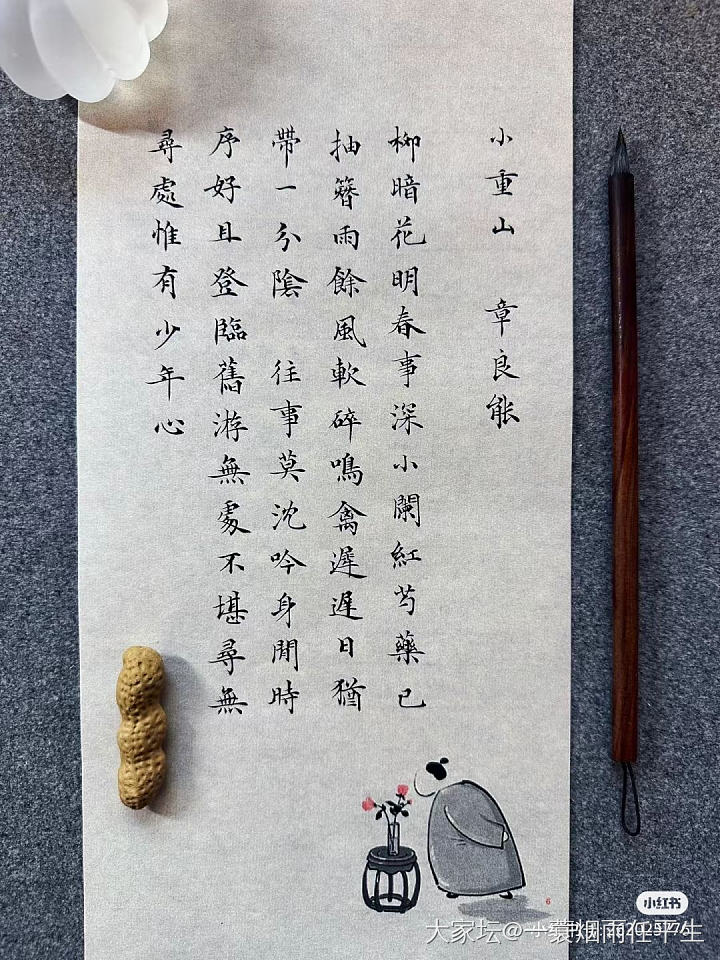 小重山 章良能
柳暗花明春事深小闌紅芍藥已
抽簪雨餘風軟碎鳴禽遲遲日猶
帶一分陰 往事莫沈吟身閒時
序好且登臨舊游無處不堪尋無
尋處惟有少年心
6
小红书
大家坛@一蓑烟雨任平生